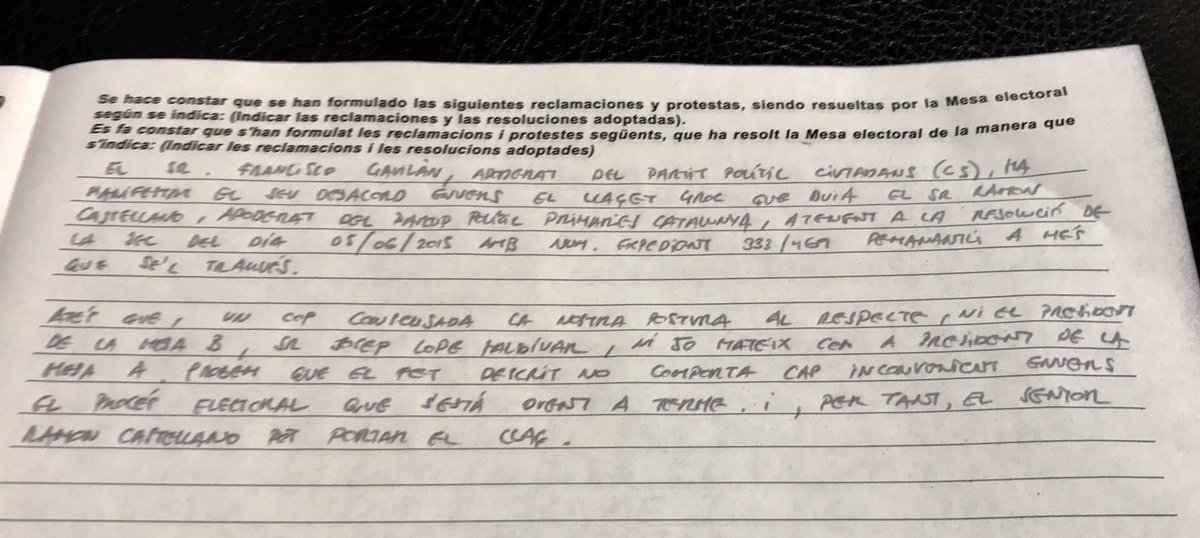 Se hace constar que se han formulado las siguientes reclamaciones y protestas, siendo resueltas por la Mesa electoral
según se indica: (Indicar las reclamaciones y las resoluciones adoptadas).
Es fa constar que s'han formulat les reclamacions i protestes següents, que ha resolt la Mesa electoral de la manera que
s'indica: (Indicar les reclamacions i les resolucions adoptades)
EL SR. FRANCISCO GAVILÀN, APODERAT DEL PARTIT POLÍTIC CIUTADANS (CS), HA
MANIFESTAT EL SEU DESACORD ENVERS EL LLACET GROC QUE DUIA EL SR RAMON
CASTELLANO, APODERAT DEL PARTIT POLÍTIC PRIMÀRIES CATALUNYA, ATENENT A LA RESOLUCIÓ DE
LA JEC DEL DÍA 05/06/2015 AMB NUM. EXPEDIENT 333/ A MÉS
QUE SE'L TRAGUÉS.
ATÈS QUE, UN COP CONSENSADA LA NOSTRA POSTURA AL RESPECTE, NI EL PRESIDENT
DE LA MESA B, SR JOSEP LOPE, NI JO MATEIX COM A PRESIDENT DE LA
MESA A, QUE EL FET DESCRIT NO COMPORTA CAP INCONVENIENT ENVERS
EL PROCÉS ELECTORAL QUE S'ESTÀ DUENT A TERME. i, PER TANT, EL SENYOR
RAMON CASTELLANO POT PORTAR EL LLAÇ.